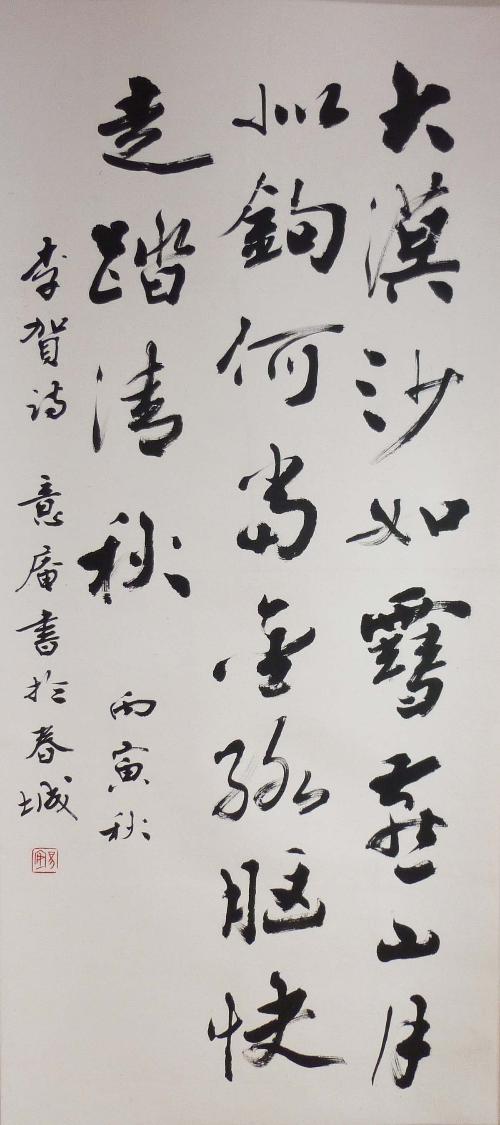 大漠沙如雪燕山月
似鉤何当金络脑快
走踏清秋 丙寅秋
李賀诗 意庵書於春城